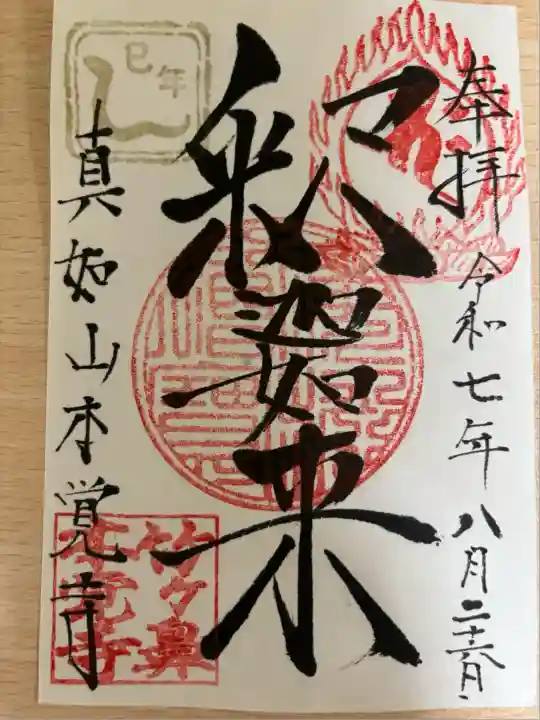 奉拝 令和七年八月二十六日
釈迦如来
真如山本覚寺
巳年
竹ヶ鼻
本覚寺